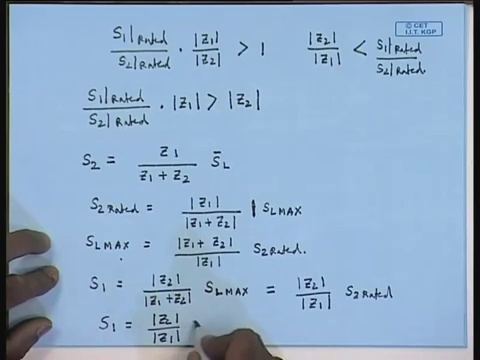 © CET
I.I.T. KGP
S1|Rated / S2|Rated · |Z1| / |Z2| > 1    |Z2| / |Z1| < S1|Rated / S2|Rated.
S1|Rated / S2|Rated · |Z1| > |Z2|
S2 = Z1 / Z1 + Z2 S̄L
S2Rated = |Z1| / |Z1 + Z2| | SLMAX
SLMAX = |Z1 + Z2| / |Z1| S2Rated.
S1 = |Z2| / |Z1 + Z2| SLMAX = |Z2| / |Z1| S2Rated
S1 = |Z2| / |Z1|